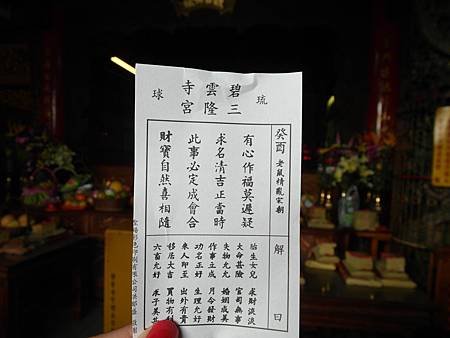 琉
碧雲寺
三隆宮
球
癸酉 老鼠精亂宋朝
有心作福莫遲疑
求名清吉正當時
此事必定成會合
財寶自然喜相隨
解曰
胎生女兒 求財淡淡
大命甚 官司無事
失物允允 婚姻成美
作事主成 月令發財
功名正好 生理允好
來人印至 出外有貴
移居大吉 買物有
六畜允好 求子